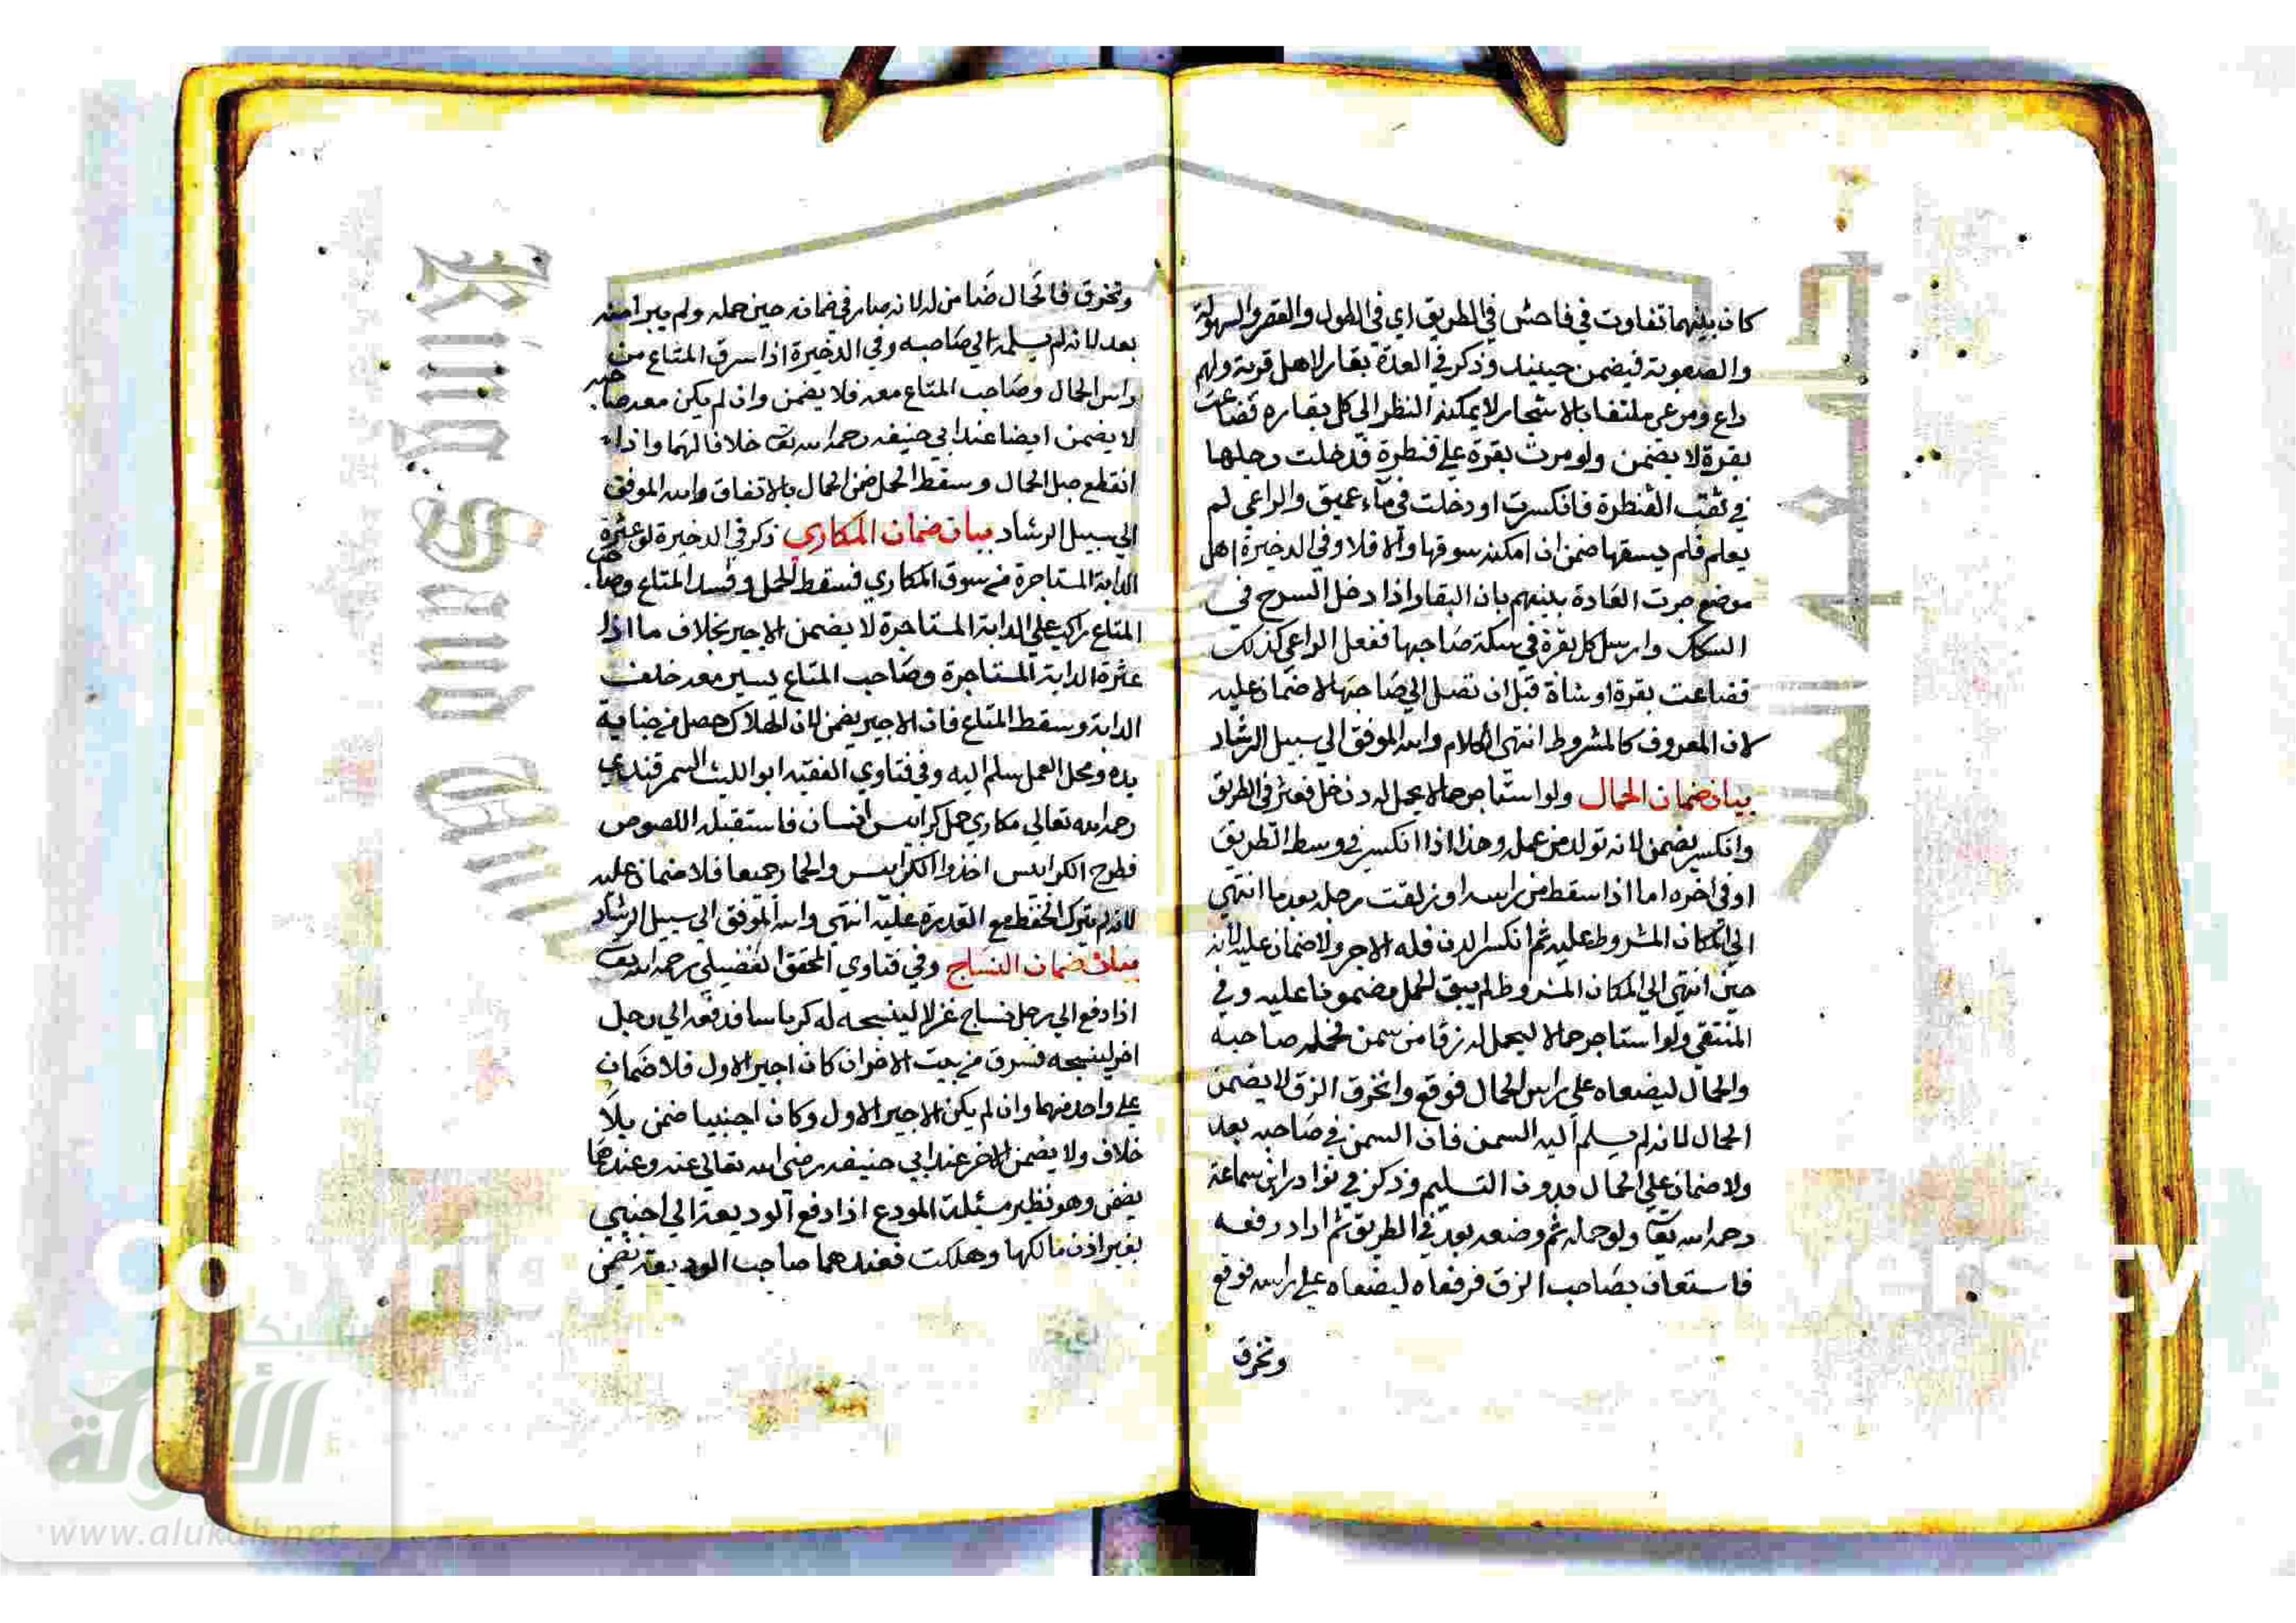 كان بينهما تفاوت في فاحش في الطريق اي في الطول والقصر والسهولة
والصعوبة فيضمن حينيذ وذكر في العدة بقار لاهل قرية ولهم
داع ومرعي ملتفا بالاشجار لا يمكنه النظر الي كل بقارة فضاعت
بقرة لا يضمن ولو مرت بقرة علي قنطرة فدخلت رجلها
في ثقب القنطرة فانكسرت او دخلت في مآء عميق والراعي لم
يعلم فلم يسقها ضمن ان امكنه سوقها والا فلا وفي الدخيرة اهل
موضع جرت العادة بينهم بان البقار اذا دخل السرح في
السكك وارسل كل بقرة في سكة صاحبها ففعل الراعي كذلك
فضاعت بقرة او شاة قبل ان تصل الي صاحبها لا ضمان عليه
لان المعروف كالمشروط انتهي الكلام والله الموفق الي سبيل الرشاد
بيان ضمان الحمال ولو استاجر حمالا يحمل له دن خل فعثر في الطريق
وانكسر يضمن لانه تولد من عمله وهذا اذا انكسر في وسط الطريق
او في اخره اما اذا سقط من راسه او زلقت رجله بعد ما انتهي
الي المكان المشروط عليه ثم انكسر الدن فله الاجر ولا ضمان عليه لانه
حين انتهي الي المكان المشروط لم يبق الحمل مضمونا عليه وفي
المنتقي ولو استاجر حمالا ليحمل له زقا من سمن فحمله صاحبه
والحمال ليضعاه علي راس الحمال فوقع وانخرق الزق لا يضمن
الحمال لانه لم يسلم اليه السمن فان السمن في صاحبه بعد
ولا ضمان علي الحمال بدون التسليم وذكر في نوادر ابن سماعة
رحمه الله تعا ولو حمله ثم وضعه بعد في الطريق ثم اراد رفعه
فاستعان بصاحب الزق فرفعاه ليضعاه علي راسه فوقع
وتخرق
وتخرق فالحمال ضامن له لانه صار في ضمانه حين حمله ولم يبرا منه
بعد لانه لم يسلمه الي صاحبه وفي الدخيرة اذا سرق المتاع من
راس الحمال وصاحب المتاع معه فلا يضمن وان لم يكن معه صاحبه
لا يضمن ايضا عند ابي حنيفه رحمه الله تعا خلافا لهما واذا
انقطع حبل الحمال وسقط الحمل ضمن الحمال بالاتفاق والله الموفق
الي سبيل الرشاد بيان ضمان المكاري ذكر في الدخيرة لو عثرة
الدابة المستاجرة من سوق المكاري فسقط الحمل وفسد المتاع وصاحب
المتاع راكب علي الدابة المستاجرة لا يضمن الاجير بخلاف ما اذا
عثرة الدابة المستاجرة وصاحب المتاع يسير معه خلف
الدابة وسقط المتاع فان الاجير يضمن لان الهلاك حصل من جناية
يده ومحل العمل سلم اليه وفي فتاوي الفقيه ابو الليث السمرقندي
رحمه الله تعالي مكاري حمل كرابيس انسان فاستقبله اللصوص
فطرح الكرابيس اخذوا الكرابيس والحمار جميعا فلا ضمان عليه
لانه لم يترك الحفظ مع القدرة عليه انتهي والله الموفق الي سبيل الرشاد
بيان ضمان النساج وفي فتاوي المحقق الفضيلي رحمه الله تعا
اذا دفع الي رجل نساج غزلا لينسجه له كرباسا فدفعه الي رجل
اخر لينسجه فسرق من بيت الاخر ان كان اجير الاول فلا ضمان
علي واحد منهما وان لم يكن الاجير الاول وكان اجنبيا ضمن بلا
خلاف ولا يضمن الاخر عند ابي حنيفه رضي الله تعالي عنه وعندهما
يضمن وهو نظير مسئلة المودع اذا دفع الوديعة الي اجنبي
بغير اذن مالكها وهلكت فعندهما صاحب الوديعة يضمن
King Saud
شبكة
الألوكة
www.alukah.net